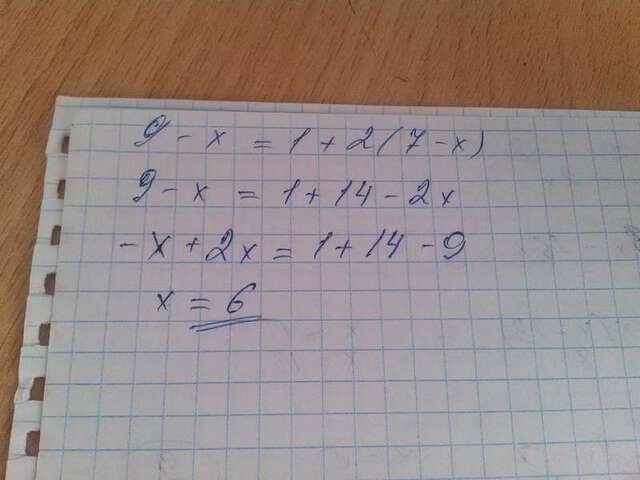 9 - x = 1 + 2(7 - x)
9 - x = 1 + 14 - 2x
-x + 2x = 1 + 14 - 9
x = 6